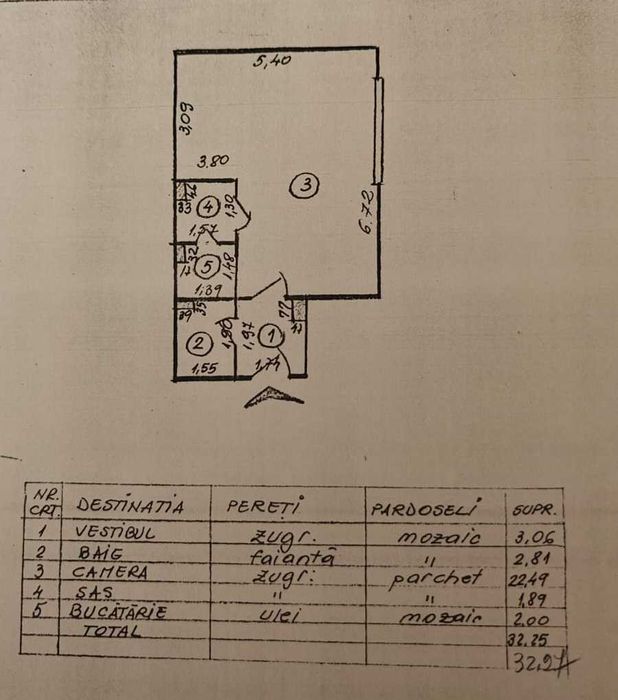 5,40
3,09
3.80
3
46
33
4
1,30
6.72
1,57
32
17
5
1,48
1,39
35
39
2
1,80
1,97
1
77
41
1,55
1,74
NR. CRT. DESTINATIA PERETI PARDOSELI SUPR.
1 VESTIBUL zugr. mozaic 3,06
2 BAIE faianță " 2,81
3 CAMERA zugr. parchet 22,49
4 SAS " " 1,89
5 BUCĂTĂRIE ulei mozaic 2.00
TOTAL 32.25
32,27